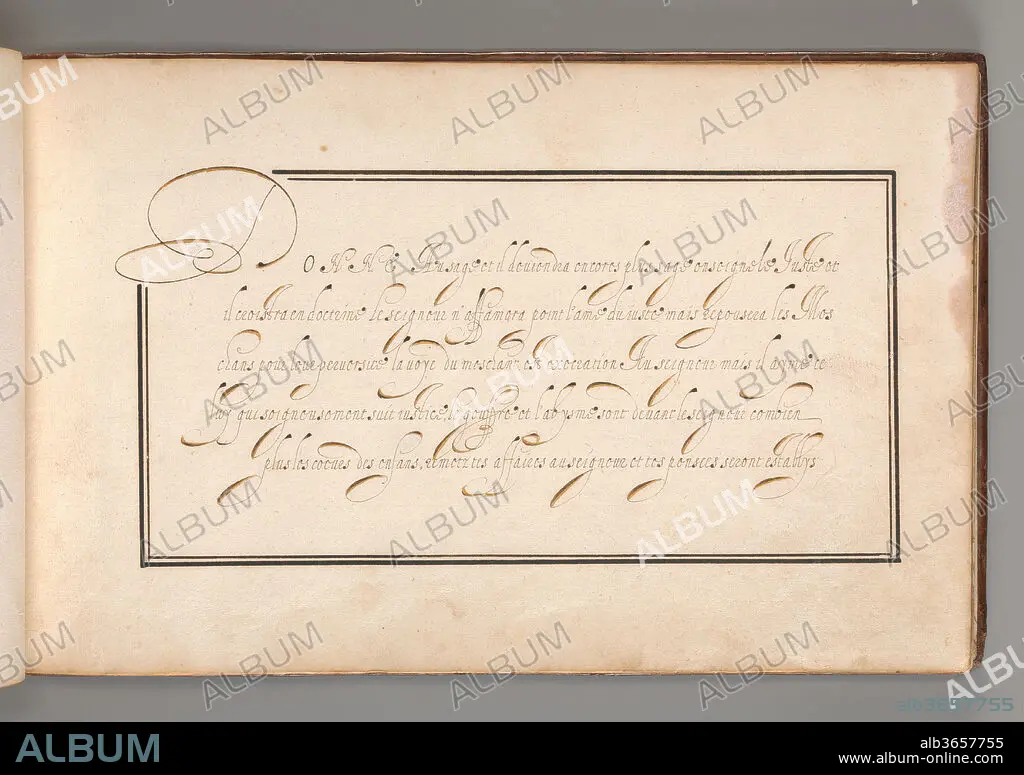 DONNE Au sage et il deuiendra encores plus sage enseigne le Juste et
il croistra en doctrine le seigneur n'affamera point l'ame du iuste mais repousera les Mes
chans pour leur peruersité la voye du meschant est execration Au seigneur mais il ayme ce
luy qui soigneusement suit iustice, le gouffre et l'abysme sont deuant le seigneur combien
plus les coeurs des enfans, remetz tes affaires au seigneur et tes pensees seront establys
ALBUM
alb3657755
ALBUM
alb3657755
www.album-online.com